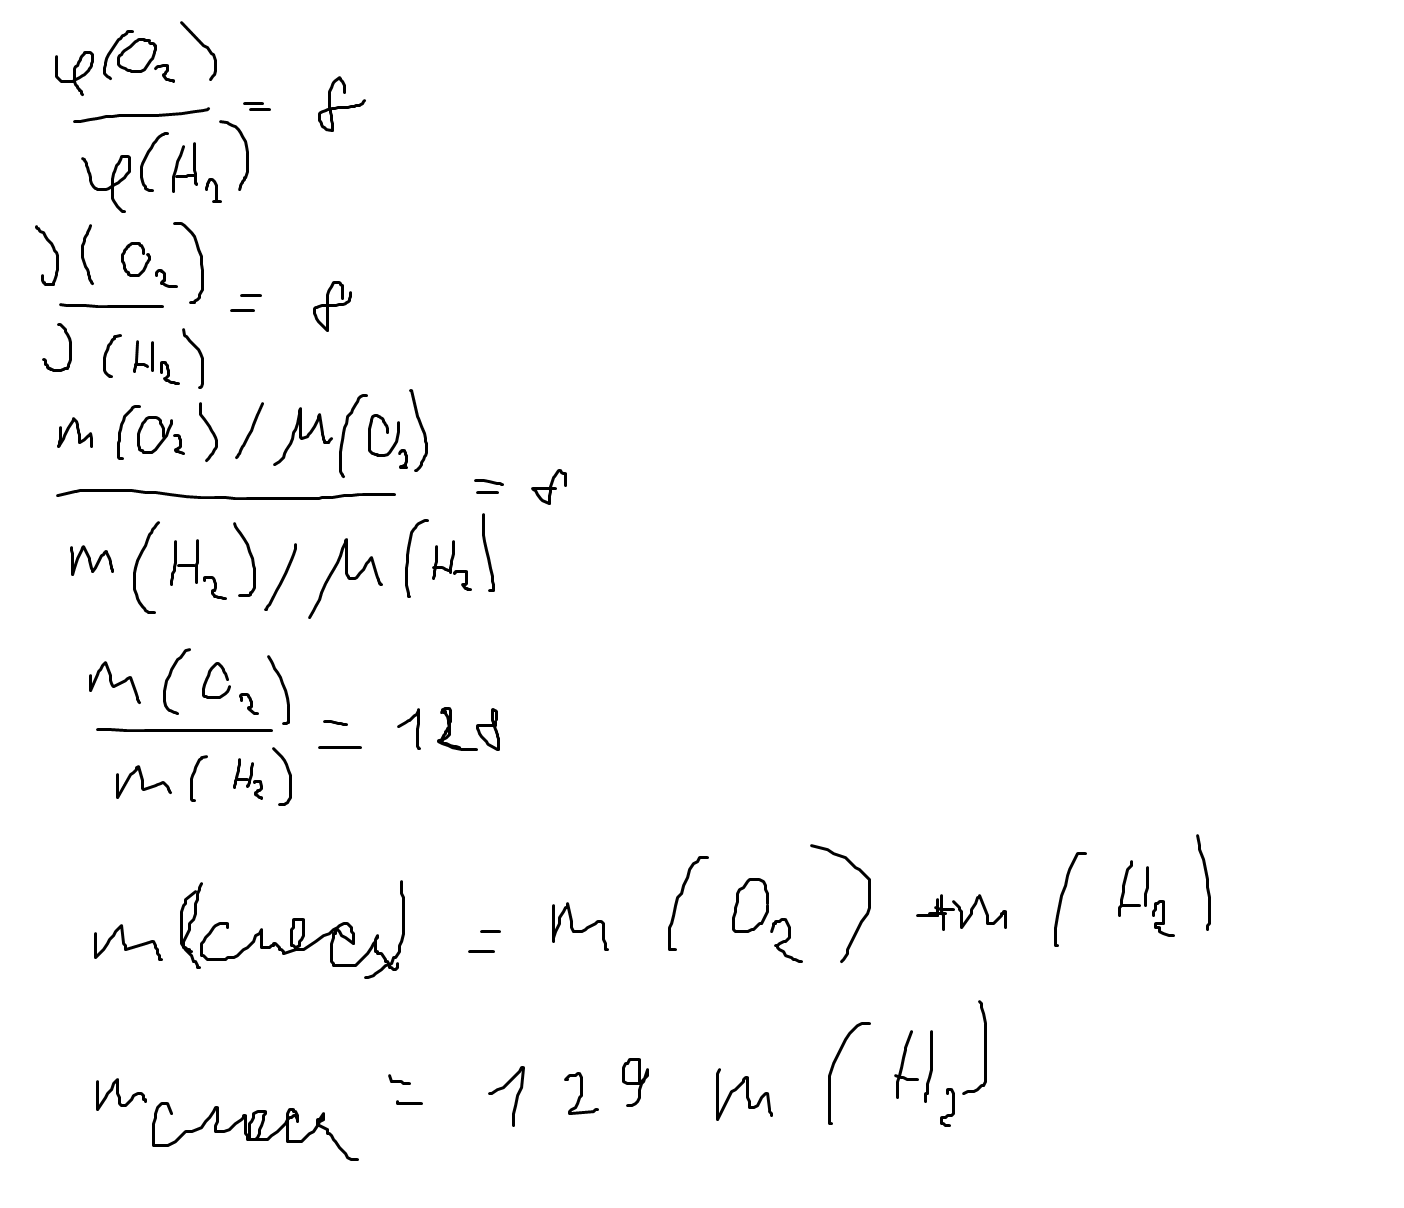 φ(O₂)
φ(H₂) = 8
ν(O₂)
ν(H₂) = 8
m(O₂) / M(O₂)
m(H₂) / M(H₂) = 8
m(O₂)
m(H₂) = 128
m(смеси) = m(O₂) + m(H₂)
mсмеси = 129 m(H₂)